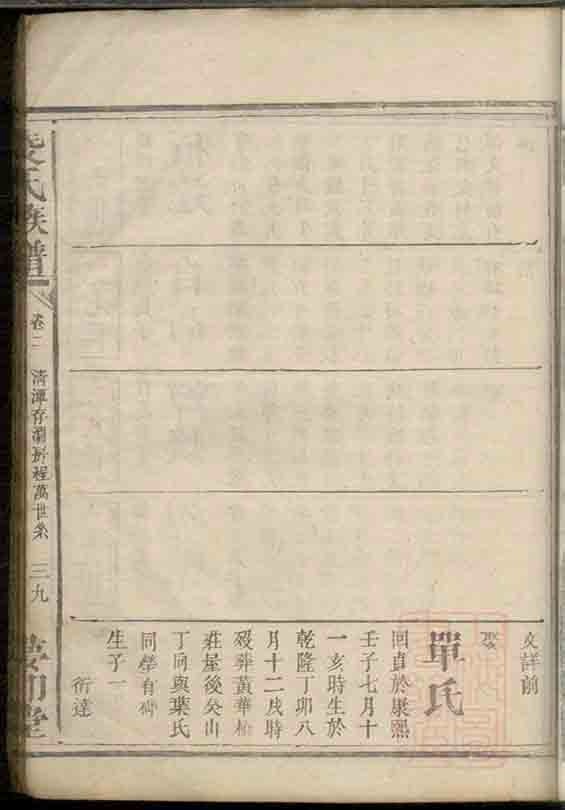 文詳前
娶
單氏
回直於康熙
壬子七月十
一亥時生於
乾隆丁卯八
月十二戌時
歿葬黃華
莊屋後癸山
丁向與葉氏
同塋有碑
生子一
衍達
氏族譜
卷二
清潭存 房程萬世系
三九
堂